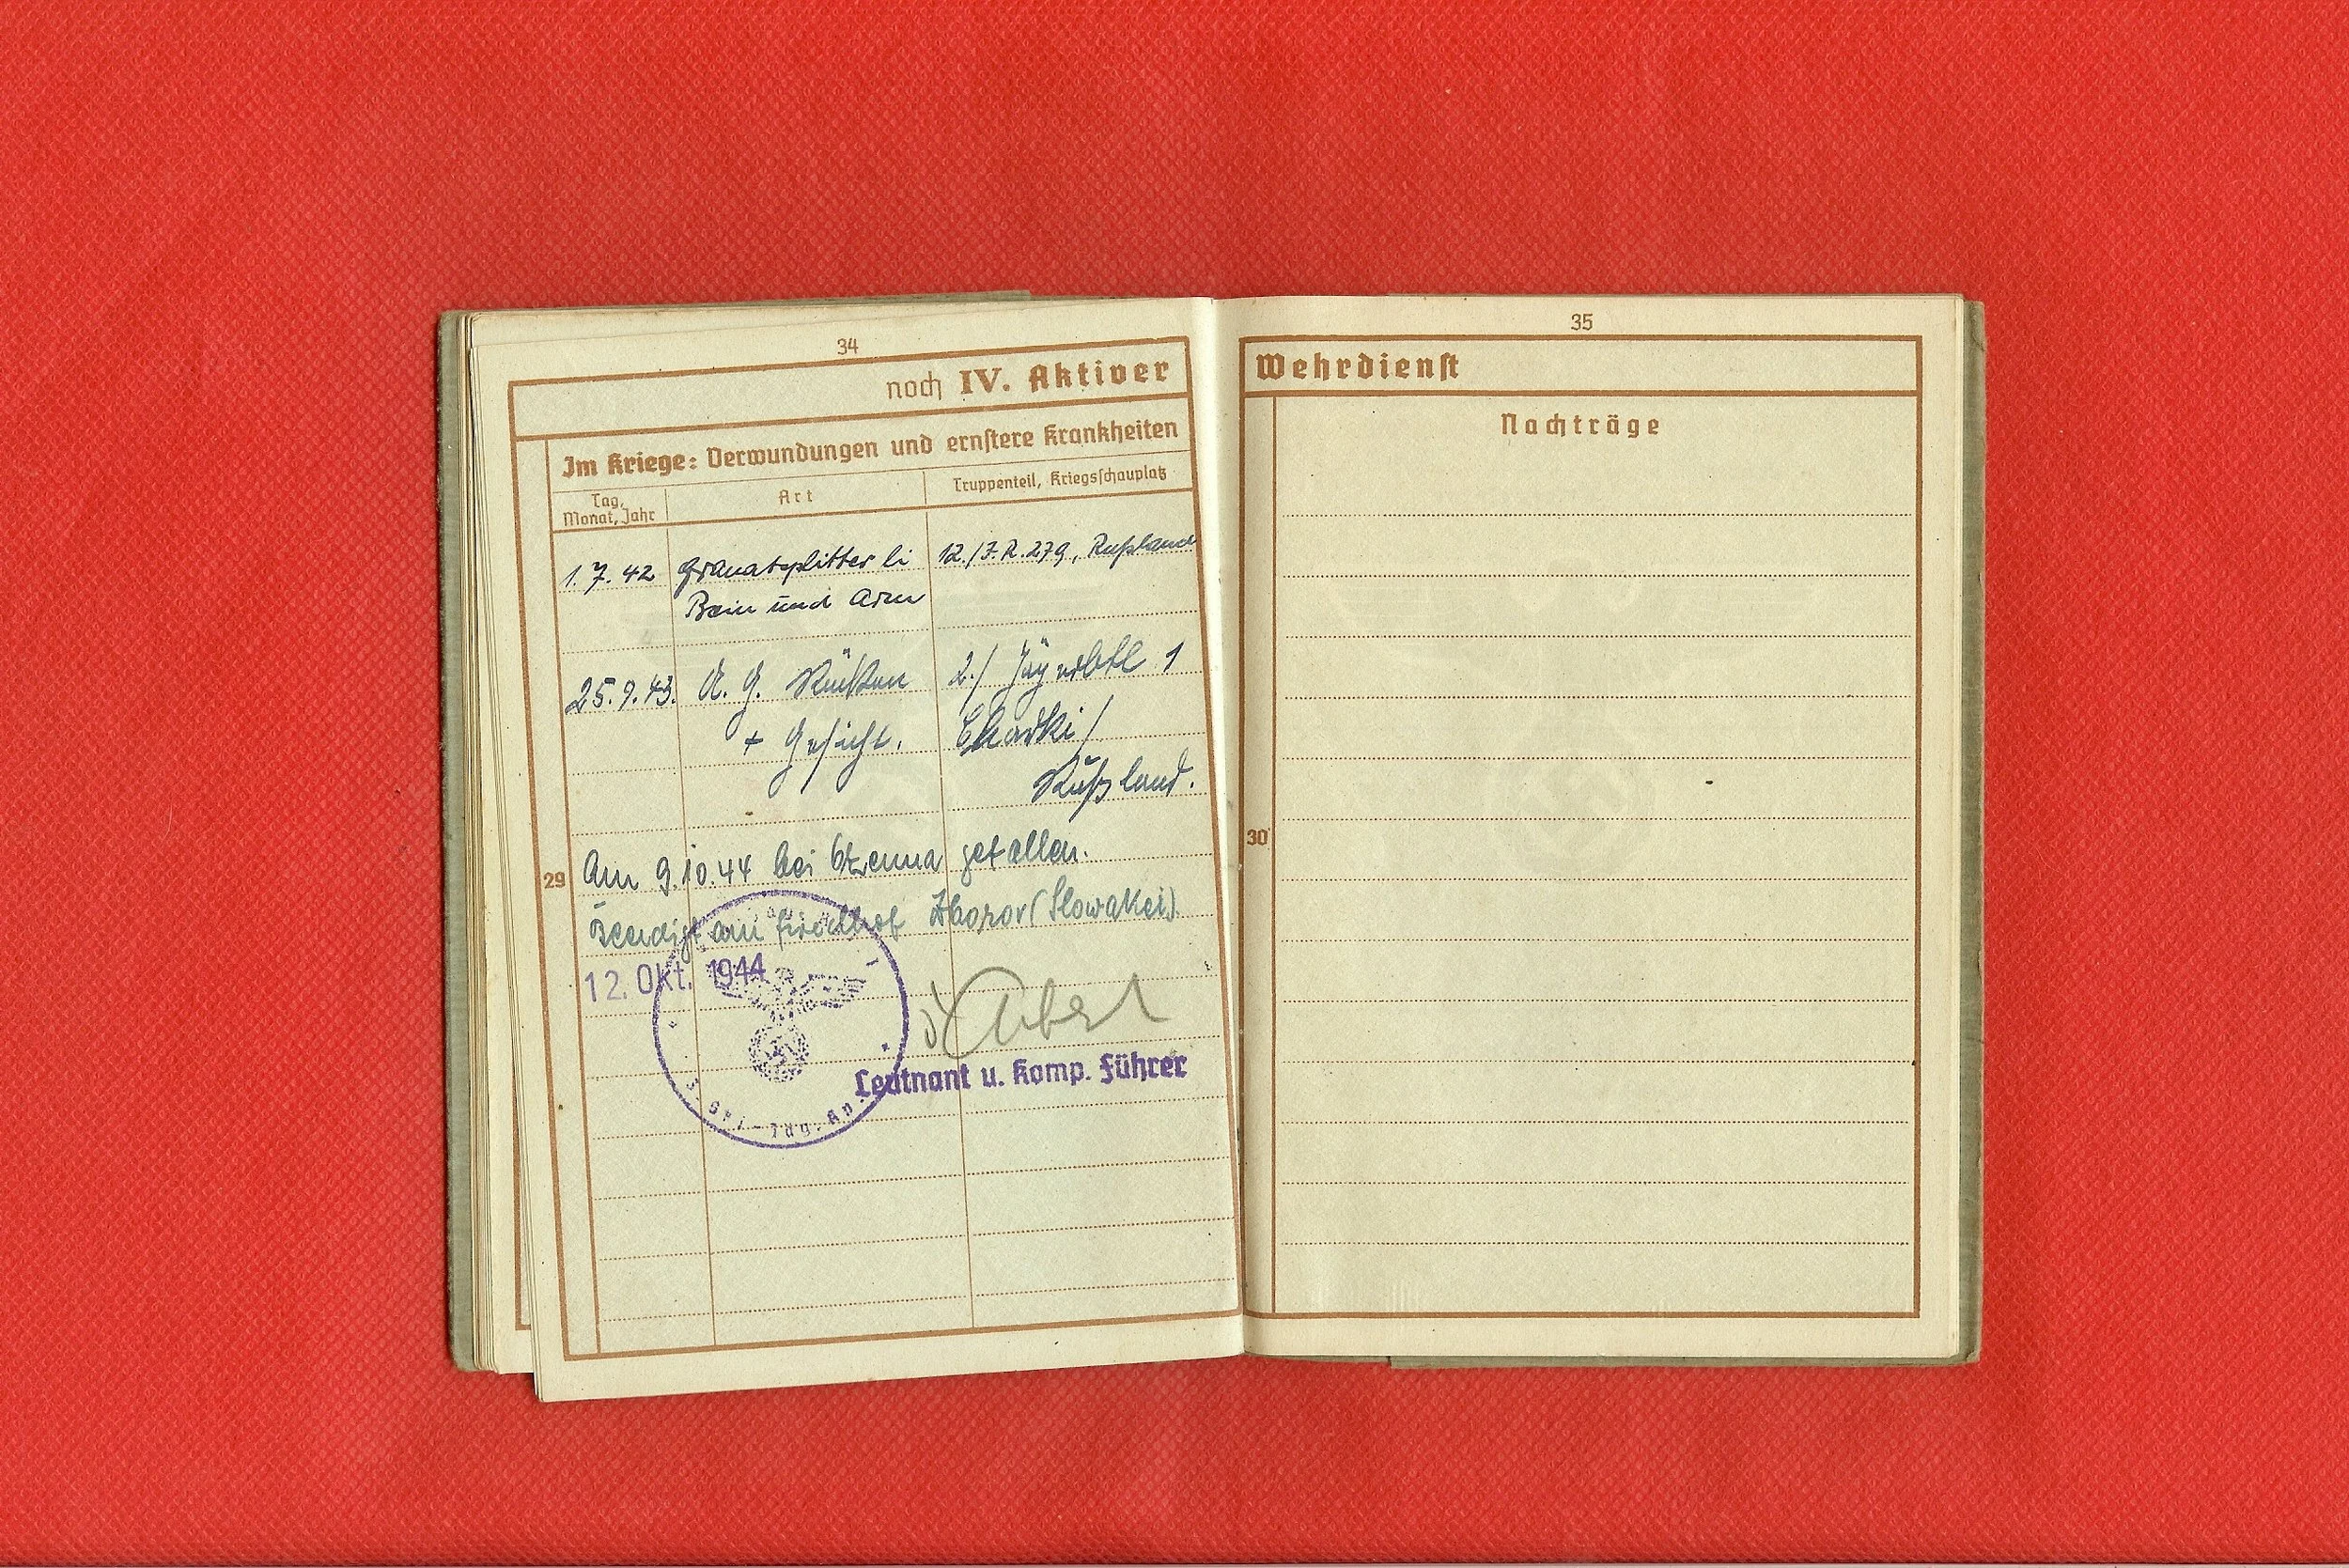 34
noch IV. Aktiver
Im Kriege: Verwundungen und ernstere Krankheiten
Tag, Monat, Jahr
Art
Truppenteil, Kriegsschauplatz
1.7.42 Granatsplitter li 12./I.R.279, Rußland
Bein und Arm
25.9.43. A. G. Rücken 2./ Jägerbtl 1
+ Gesicht.
Rußland.
29
Am 9.10.44 bei gefallen.
Beerdigt am Friedhof Zborov (Slowakei).
12. Okt. 1944
Leutnant u. Komp. Führer
35
Wehrdienst
Nachträge
30